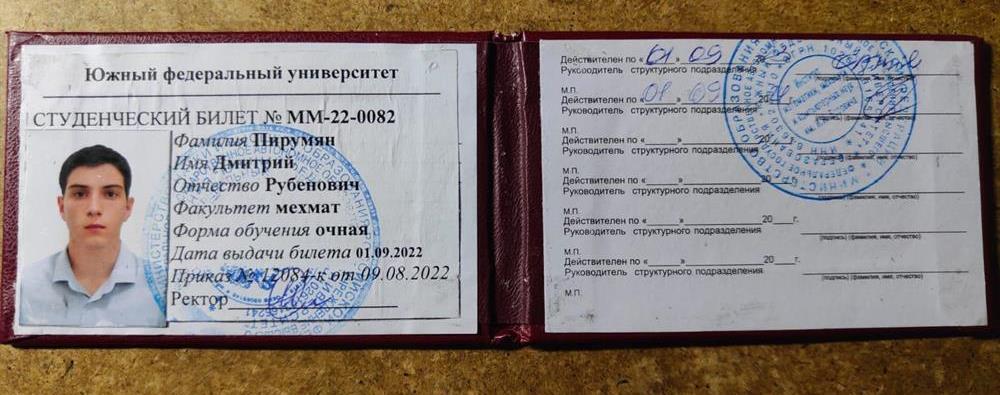 Южный федеральный университет
СТУДЕНЧЕСКИЙ БИЛЕТ № ММ-22-0082
Фамилия Пирумян
Имя Дмитрий
Отчество Рубенович
Факультет мехмат
Форма обучения очная
Дата выдачи билета 01.09.2022
Приказ № 12084-к от 09.08.2022
Ректор
Действителен по « 01 » 09 20
Руководитель структурного подразделения
(подпись) (фамилия, имя, отчество)
М.П.
Действителен по « 01 » 09 20
Руководитель структурного подразделения
М.П.
Действителен по « » 20 г.
Руководитель структурного подразделения
М.П.
Действителен по « » 20 г.
Руководитель структурного подразделения
(подпись) (фамилия, имя, отчество)
М.П.
Действителен по « » 20 г.
Руководитель структурного подразделения
(подпись) (фамилия, имя, отчество)
М.П.
Действителен по « » 20 г.
Руководитель структурного подразделения
(подпись) (фамилия, имя, отчество)
М.П.